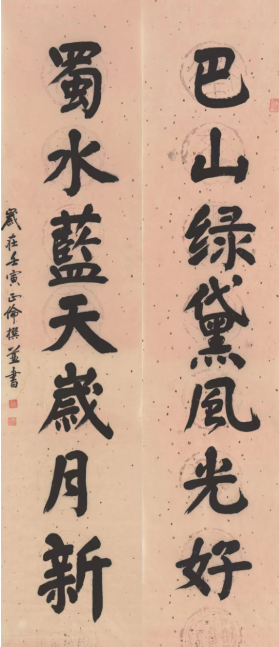 巴山绿黛風光好
蜀水藍天歲月新
歲在壬寅正倫撰並書